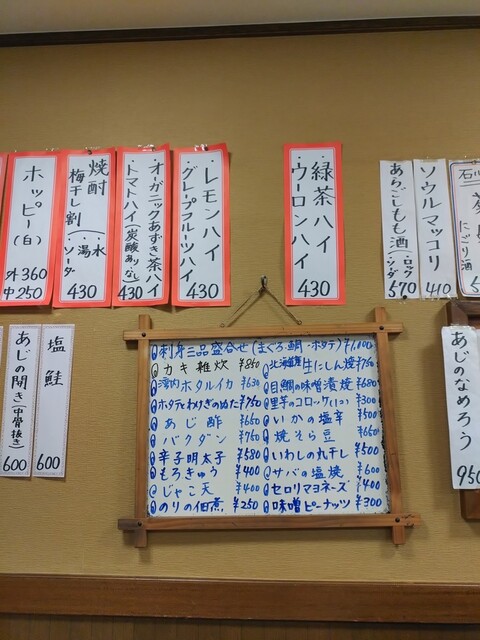 石川
にごり酒
ソウルマッコリ
410
あらごしもも酒
ロック
ソーダ
570
緑茶ハイ
ウーロンハイ
430
レモンハイ
グレープフルーツハイ
430
オーガニックあずき茶ハイ
トマトハイ(炭酸ありなし)
430
焼酎
梅干し割
水
湯
ソーダ
430
ホッピー(白)
外360
中250
刺身三品盛合せ(まぐろ・鯛・ホタテ)¥1,000
カキ雑炊 ¥850
湾内ホタルイカ ¥630
ホタテとわけぎのぬた ¥750
あじ酢 ¥650
バクダン ¥750
辛子明太子 ¥580
もろきゅう ¥400
じゃこ天 ¥400
のりの佃煮 ¥250
北海道産生にしん焼 ¥750
目鯛の味噌漬焼 ¥680
里芋のコロッケ(1コ) ¥300
いかの塩辛 ¥500
焼そら豆 ¥650
いわしの丸干し ¥500
サバの塩焼 ¥600
セロリマヨネーズ ¥400
味噌ピーナッツ ¥300
あじのなめろう
950
塩鮭
600
あじの開き(中骨抜き)
600